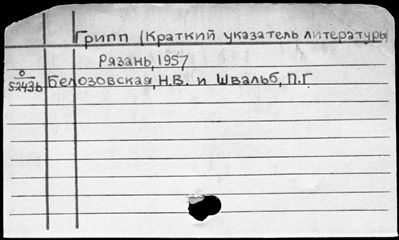 Грипп (Краткий указатель литературы
Рязань, 1957
О
5243б
Белозовская, Н.В. и Швальб, П.Г